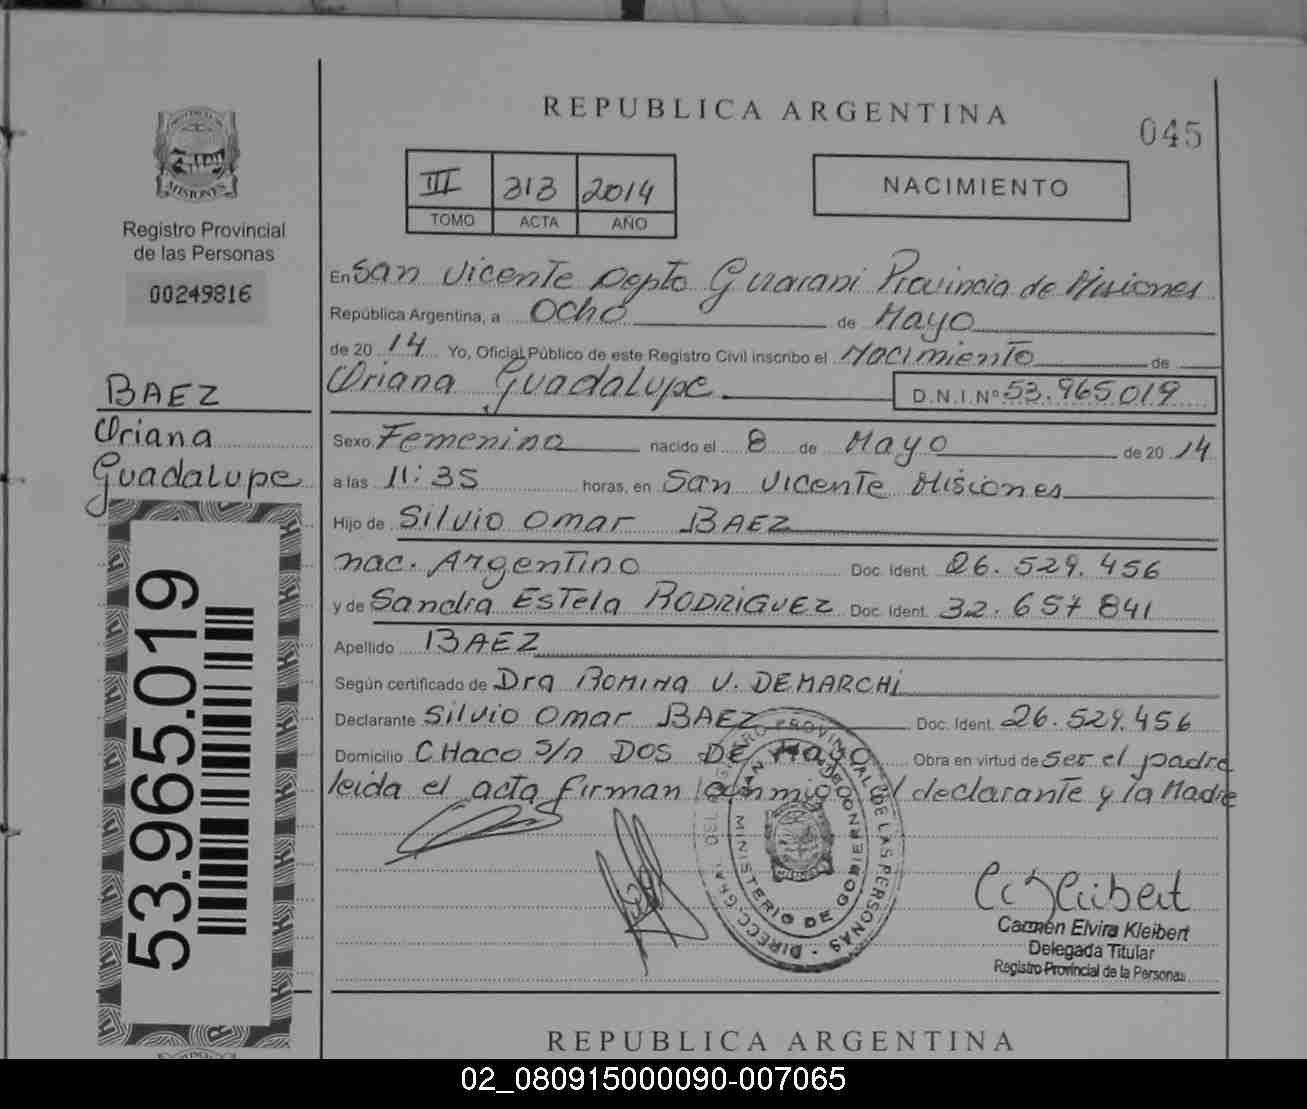 REPUBLICA ARGENTINA
045
MISIONES
Registro Provincial
de las Personas
00249816
III 313 2014
TOMO ACTA AÑO
NACIMIENTO
En San Vicente Depto Guarani Provincia de Misiones
República Argentina, a Ocho de Mayo
de 20 14 Yo, Oficial Público de este Registro Civil inscribo el Nacimiento de
Oriana Guadalupe D.N.I.Nº 53.965.019
BAEZ
Oriana
Guadalupe
53.965.019
Sexo Femenino nacido el 8 de Mayo de 20 14
a las 11:35 horas, en San Vicente Misiones
Hijo de Silvio Omar BAEZ
nac. Argentino Doc. Ident. 26.529.456
y de Sandra Estela RODRIGUEZ Doc. Ident. 32.657 841
Apellido BAEZ
Según certificado de Dra ROMINA V. DEMARCHI
Declarante Silvio Omar BAEZ Doc. Ident. 26.529.456
Domicilio CHaco S/n DOS DE Mayo Obra en virtud de Ser el padre
leida el acta firman conmigo el declarante y la Madre
MINISTERIO DE GOBIERNO
Carmen Elvira Kleibert
Delegada Titular
Registro Provincial de la Personas
REPUBLICA ARGENTINA
02_080915000090-007065